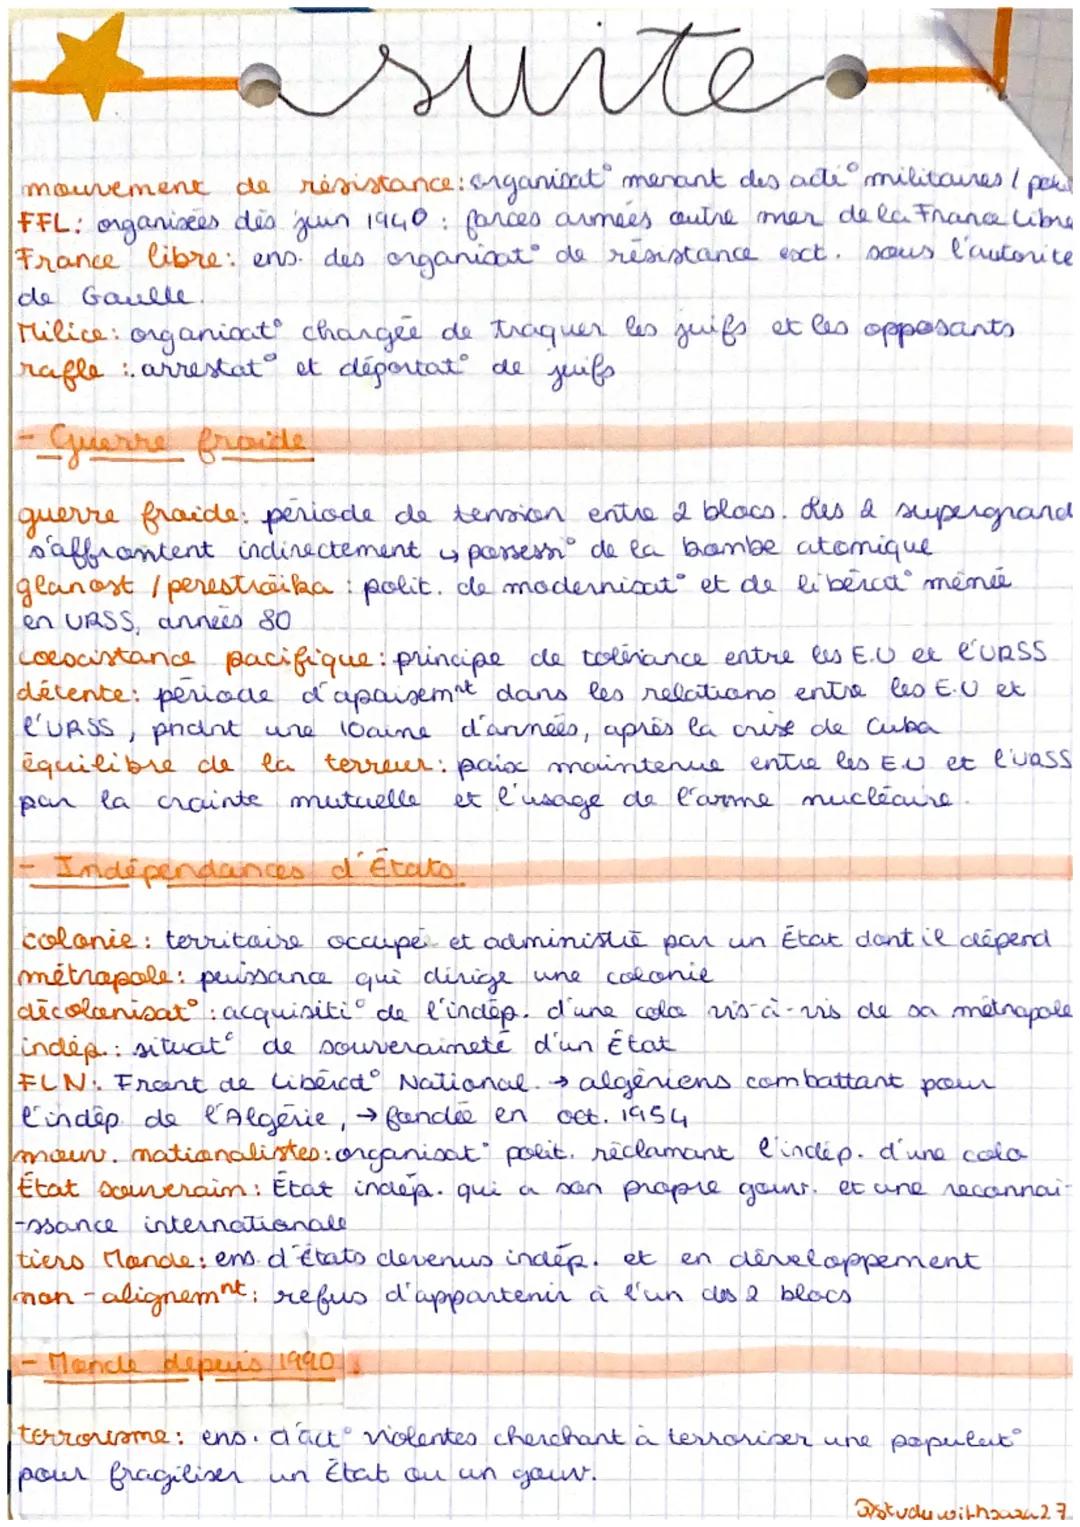 suite
mouvement de résistance: organisat° menant des acti° militaires /
FFL: organisées dès juin 1940 : forces armées outre mer de la France Libre
France libre: ens. des organisat° de résistance ext. sous l'autorité
de Gaulle.
Milice: organisat° chargée de traquer les juifs et les opposants
rafle : arrestat° et déportat° de juifs
- Guerre froide
guerre froide: période de tension entre 2 blocs. Les 2 supergrand
s'affrontent indirectement ↳ possessi° de la bombe atomique
glanost / perestroïka : polit. de modernisat° et de libérat° ménée
en URSS, années 80
coexistance pacifique: principe de tolérance entre les E.U et l'URSS
détente: période d'apaisemnt dans les relations entre les E.U et
l'URSS, pndnt une 10aine d'années, après la crise de Cuba
équilibre de la terreur: paix maintenue entre les E.U et l'URSS
par la crainte mutuelle et l'usage de l'arme nucléaire.
- Indépendances d'États
colonie: territoire occupé et administré par un État dont il dépend
métropole: puissance qui dirige une colonie
décolonisat°: acquisiti° de l'indép. d'une colo vis-à-vis de sa métropole
indép.: situat° de souveraineté d'un État
FLN: Front de Libérat° National → algériens combattant pour
l'indép de l'Algérie, → fondée en oct. 1954
mouv. nationalistes: organisat° polit. réclamant l'indép. d'une colo
État souverain: État indép. qui a son propre gouv. et une reconnai-
-ssance internationale
tiers Monde: ens. d'États devenus indép. et en développement
non-alignemnt: refus d'appartenir à l'un des 2 blocs
- Monde depuis 1990
terrorisme: ens. d'act° violentes cherchant à terroriser une populat°
pour fragiliser un État ou un gouv.
@studywithzaza27